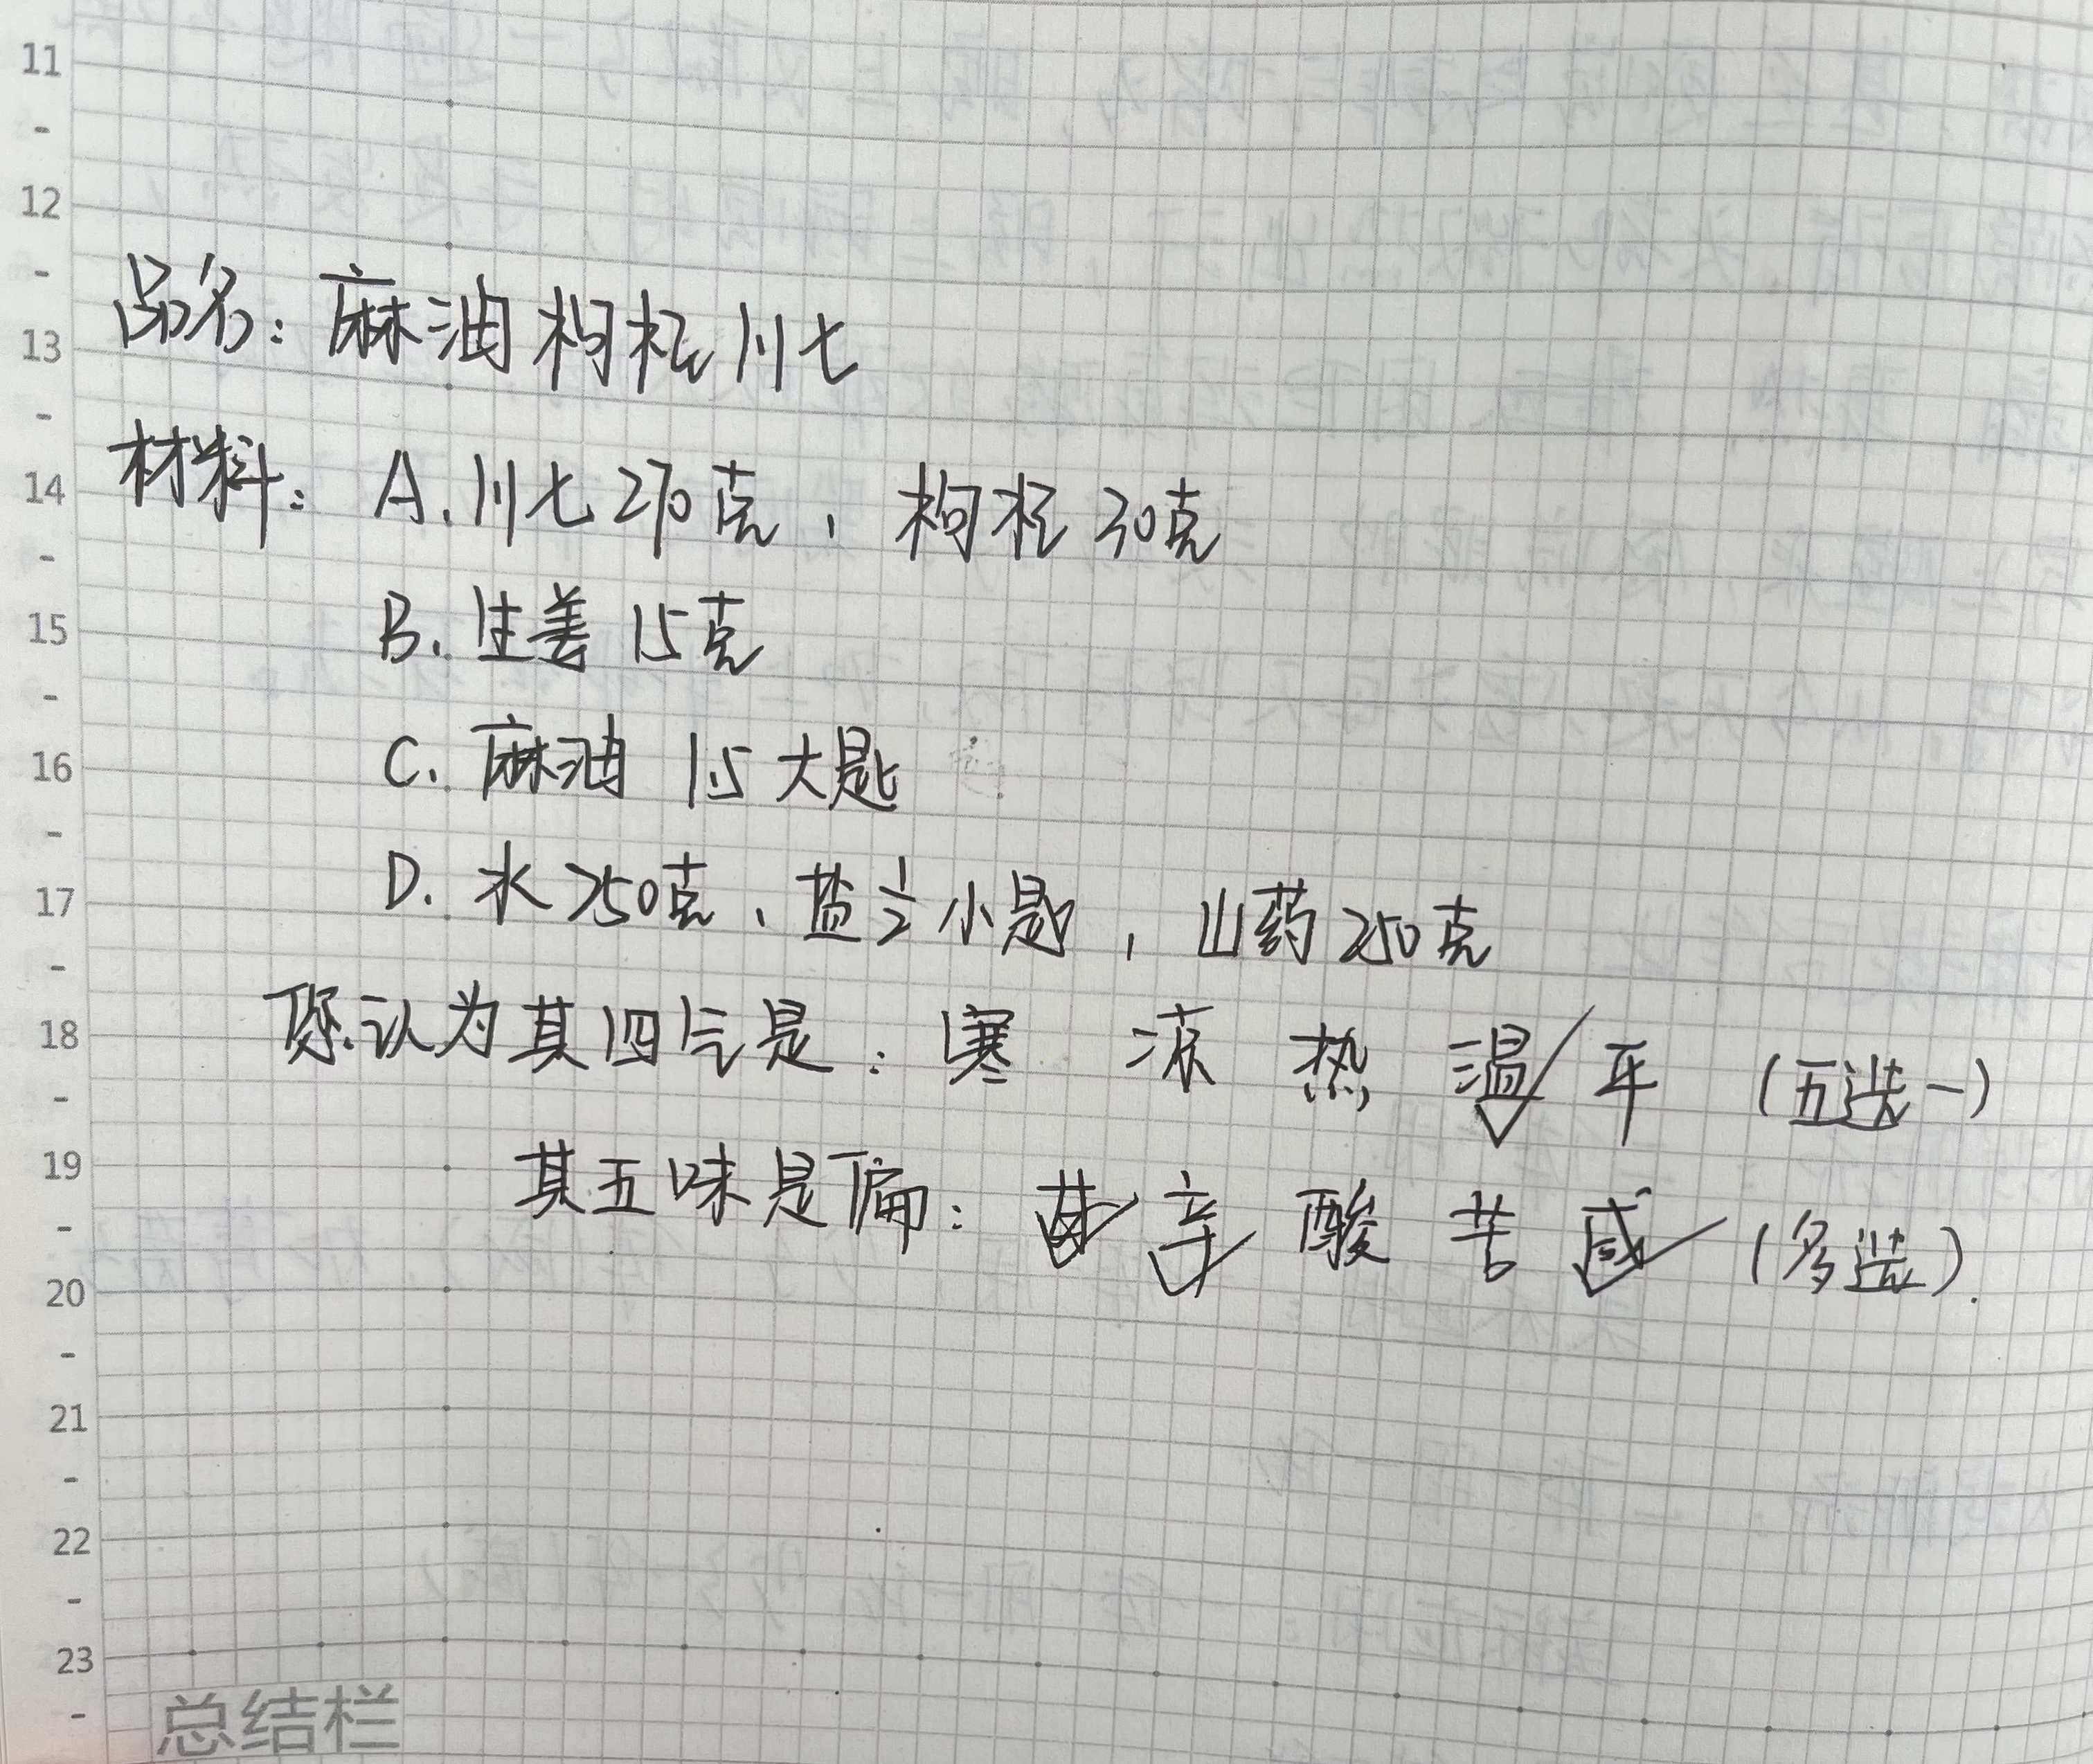 11
12
13
品名：麻油枸杞川七
14
材料：A.川七270克，枸杞30克
15
B.生姜15克
16
C.麻油 1.5大匙
17
D.水250克、盐½小匙，山药250克
18
您认为其四气是：寒 凉 热 温✓ 平（五选一）
19
其五味是偏：甘✓ 辛✓ 酸 苦 咸✓（多选）.
20
21
22
23
总结栏